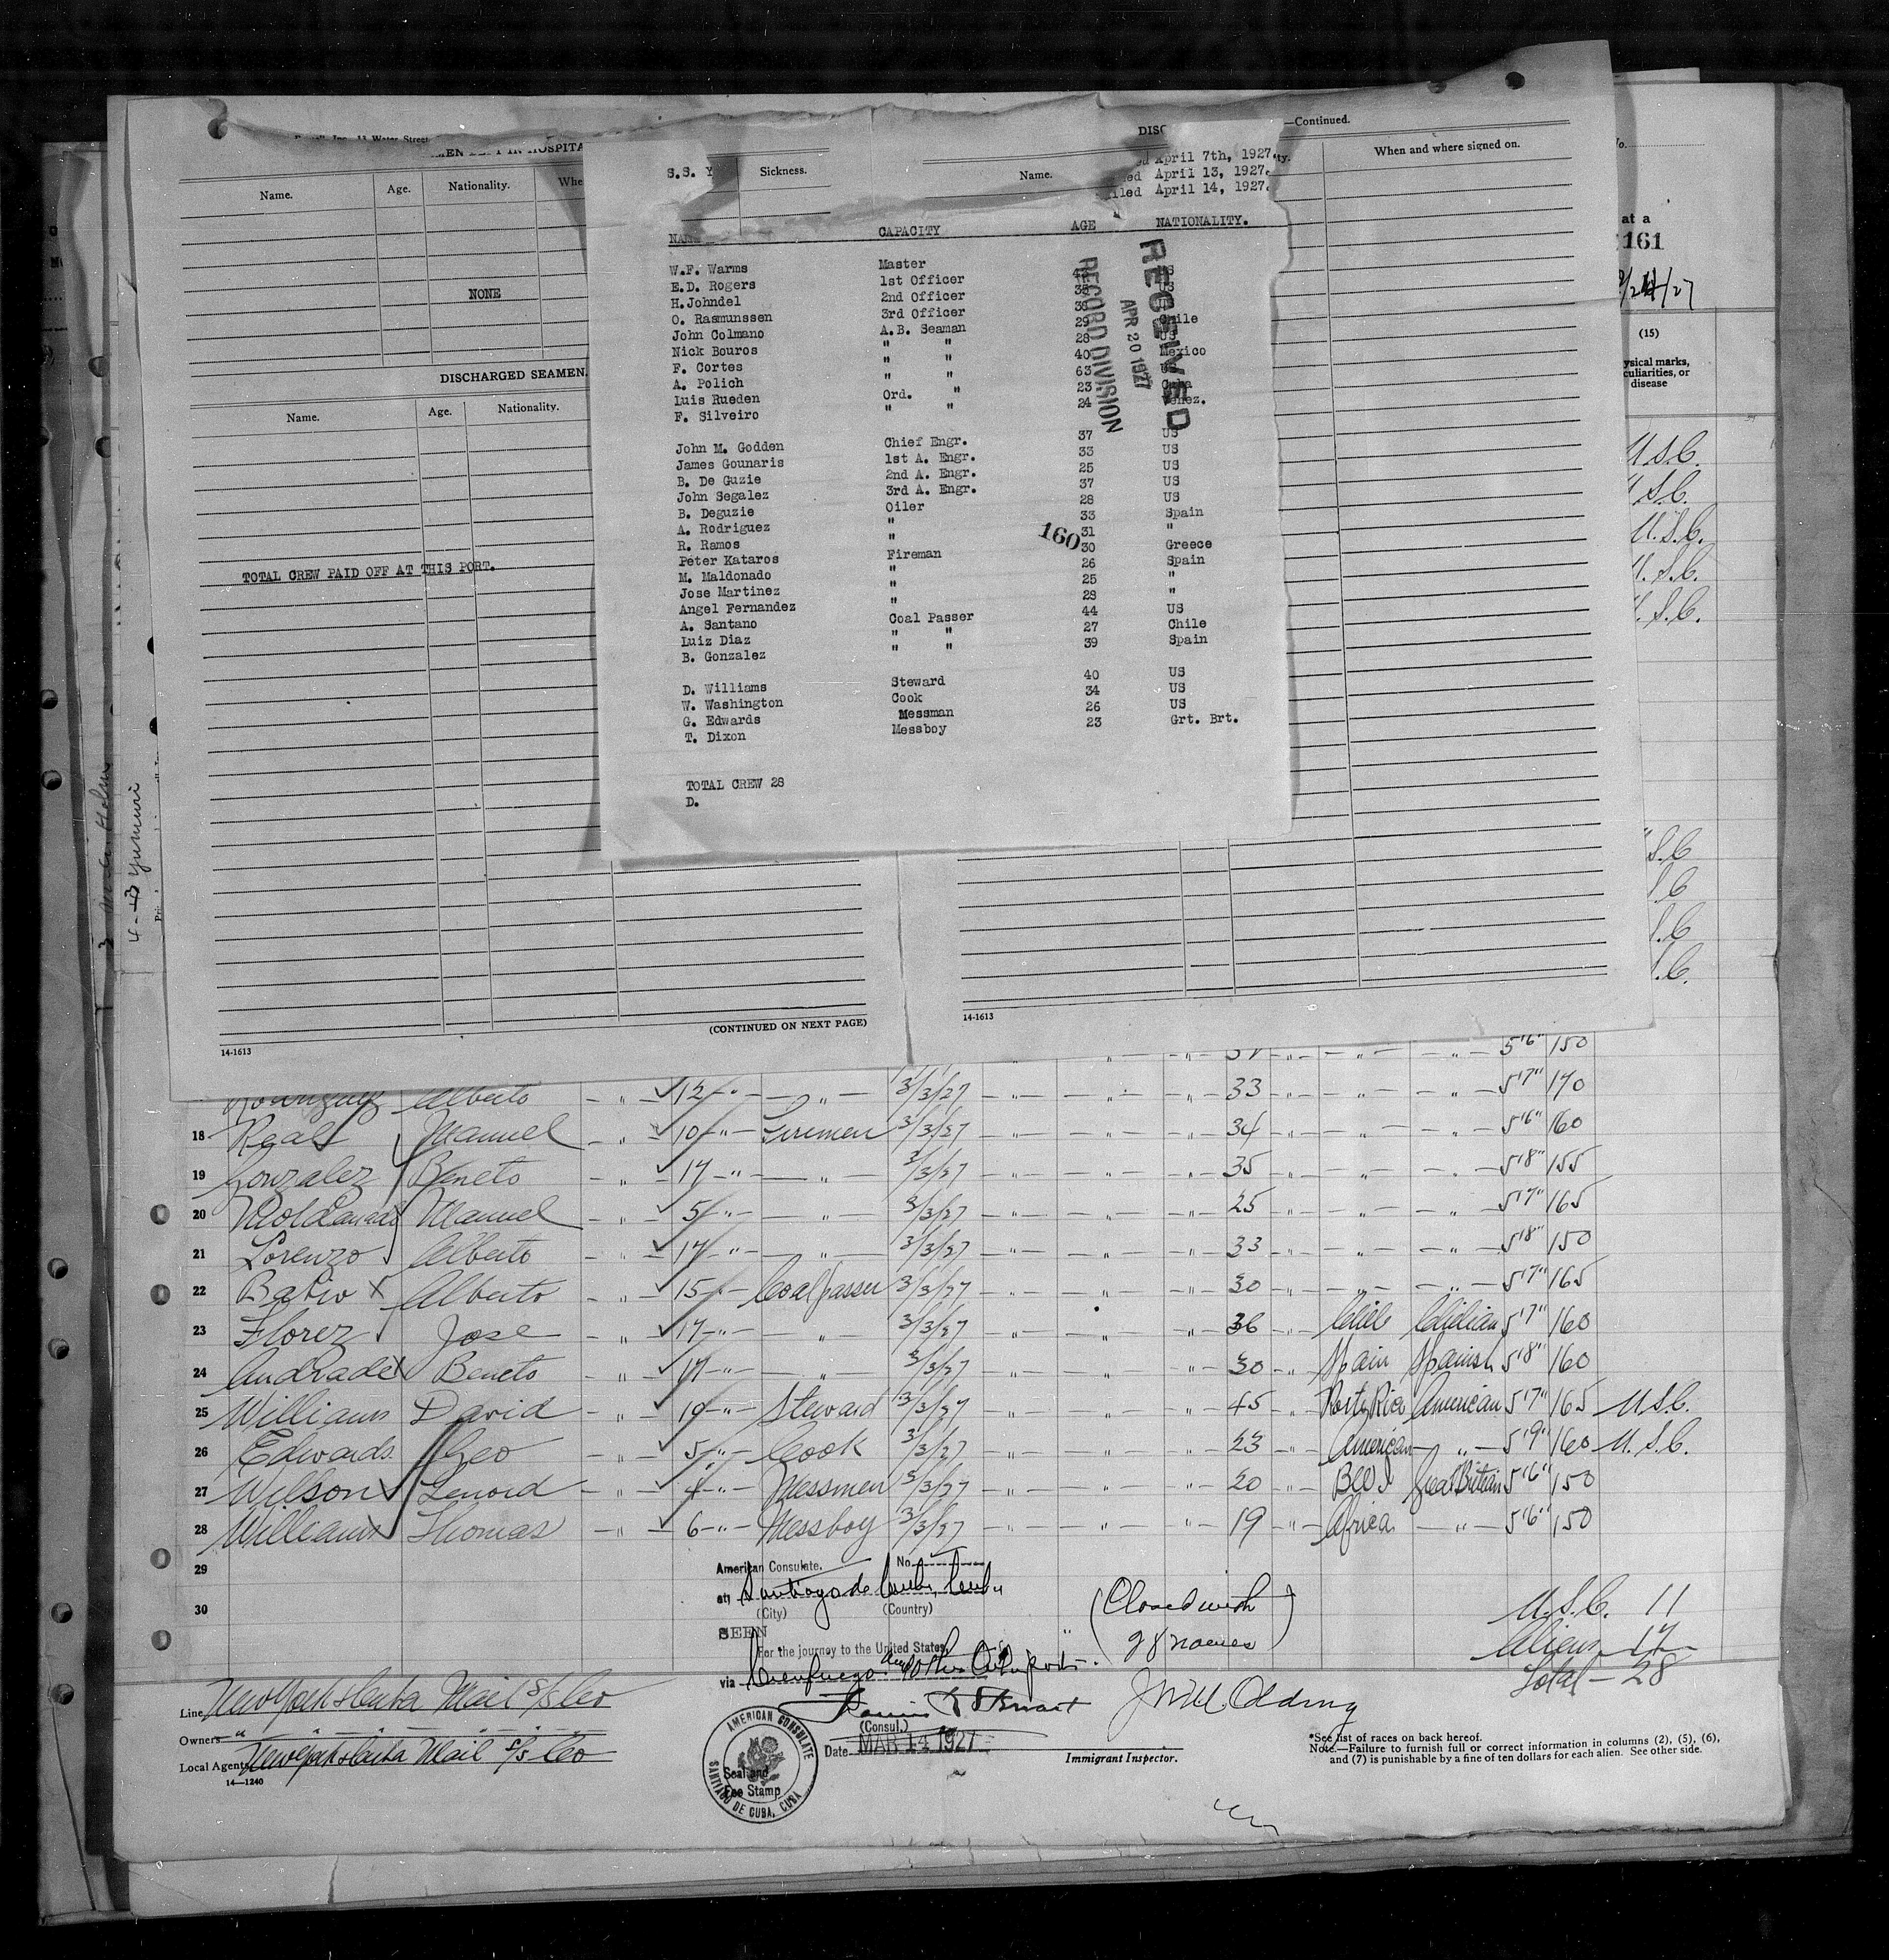 SEAMEN LEFT IN HOSPITA
Name. Age. Nationality. Whe
NONE
DISCHARGED SEAMEN.
Name. Age. Nationality.
TOTAL CREW PAID OFF AT THIS PORT.
(CONTINUED ON NEXT PAGE)
14-1613
DISC —Continued.
Sickness. Name. When and where signed on.
14-1613
S.S. Y
April 7th, 1927.
April 13, 1927.
April 14, 1927.
NAME CAPACITY AGE NATIONALITY.
W.F. Warms Master US
E.D. Rogers 1st Officer 35 US
H.Johndel 2nd Officer
O. Rasmunssen 3rd Officer 29 Chile
John Colmano A.B. Seaman 28 US
Nick Bouros " " 40 Mexico
F. Cortes " " 63
A. Polich " " 23 Cuba
Luis Rueden Ord. " 24 Venez.
F. Silveiro " "
John M. Godden Chief Engr. 37 US
James Gounaris 1st A. Engr. 33 US
B. De Guzie 2nd A. Engr. 25 US
John Segalez 3rd A. Engr. 37 US
B. Deguzie Oiler 28 US
A. Rodriguez " 33 Spain
R. Ramos " 31 "
Peter Kataros Fireman 30 Greece
M. Maldonado " 26 Spain
Jose Martinez " 25 "
Angel Fernandez " 29 "
A. Santano Coal Passer 44 US
Luiz Diaz " " 27 Chile
B. Gonzalez " " 39 Spain
D. Williams Steward 40 US
W. Washington Cook 34 US
G. Edwards Messman 26 US
T. Dixon Messboy 23 Grt. Brt.
TOTAL CREW 28
D.
RECEIVED
APR 20 1927
RECORD DIVISION
160
at a
161
(15)
ysical marks,
culiarities, or
disease
U.S.C.
S.C.
U.S.C.
U.S.C.
U.S.C.
S.C
S.C
S.C
S.C.
4-13 Yumuri
5'6" 150
Rodriguez Alberto 12 3/3/27 33 5'7" 170
18 Real Manuel 10 Firemen 3/3/27 34 5'6" 160
19 Gonzalez Beneto 17 3/3/27 35 5'8" 155
20 Moldanado Manuel 5 3/3/27 25 5'7" 165
21 Lorenzo Alberto 17 3/3/27 33 5'8" 150
22 Alberto 15 Coal passer 3/3/27 30 5'7" 165
23 Florez Jose 17 3/3/27 36 Chile Chilian 5'7" 160
24 Andrade Beneto 17 3/3/27 30 Spain Spanish 5'8" 160
25 Williams David 10 Steward 3/3/27 45 Porto Rico American 5'7" 165 U.S.C.
26 Edwards Geo 5 Cook 3/3/27 23 American " 5'9" 160 U.S.C.
27 Wilson Lenord 4 Messmen 3/3/27 20 B.W.I. Great Britian 5'6" 150
28 Williams Thomas 6 Messboy 3/3/27 19 Africa " 5'6" 150
29
30
American Consulate. No.
at Santiago de Cuba, Cuba
(City) (Country)
SEEN
For the journey to the United States,
via Cienfuegos and other Cuban ports.
(Consul.)
Date MAR 14 1927
AMERICAN CONSULATE
SANTIAGO DE CUBA, CUBA
Seal and
Fee Stamp
(Closed with
28 names)
Immigrant Inspector.
U.S.C. 11
Aliens 17
Total - 28
Line New York & Cuba Mail S/S Co
Owners " " " " " "
Local Agents New York & Cuba Mail S/S Co
14—1240
*See list of races on back hereof.
Note.—Failure to furnish full or correct information in columns (2), (5), (6),
and (7) is punishable by a fine of ten dollars for each alien. See other side.